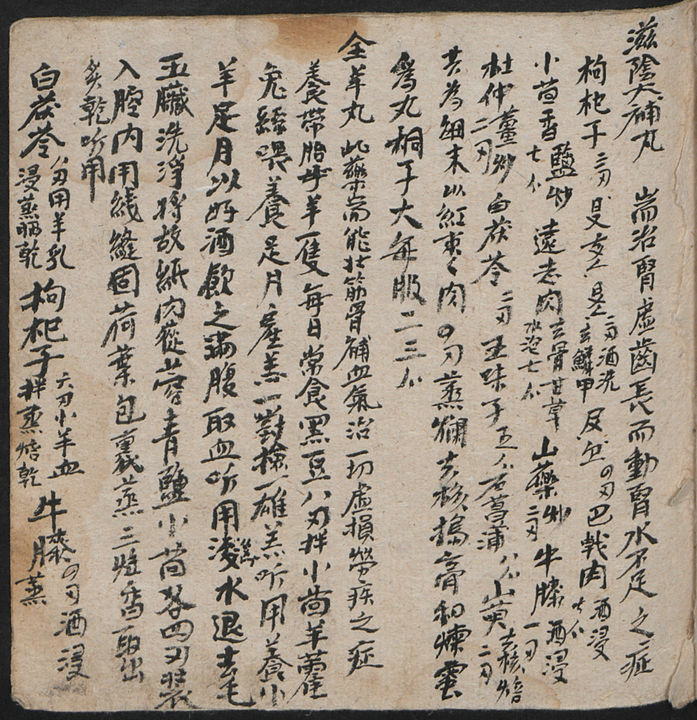 滋陰大補丸 耑治腎虛齒長而動腎水不足之症
枸杞子三刄 二刄酒洗 去鱗甲 皮 四刄巴戟肉酒浸七𠆢
小茴香鹽炒七𠆢 遠志肉去骨甘草水泡七𠆢 山藥炒二刄 牛膝酒浸一刄
杜仲薑炒二刄 白茯苓二刄 五味子五𠆢 石菖蒲八𠆢 山萸去核焙二刄
共為細末以紅棗肉四刄蒸爛去核搗膏和煉蜜
為丸桐子大每服二三𠆢
全羊丸 此藥耑能壯筋骨補血氣治一切虛損勞疾之症
養帶胎母羊一隻每日常食黑豆八刄拌小茴羊藿
兔絲喂養足月產羔一對擒一雄羔听用養小
羊足月以好酒飲之滿腹取血听用滾水退去毛
五臟洗淨將故紙肉蓯蓉青鹽小茴各四刄裝
入腔內用綫縫固荷葉包裹蒸三炷香取出
炙乾听用
白茯苓八刄用羊乳浸蒸晒乾 枸杞子六刄小羊血拌蒸焙乾 牛膝四刄酒浸蒸